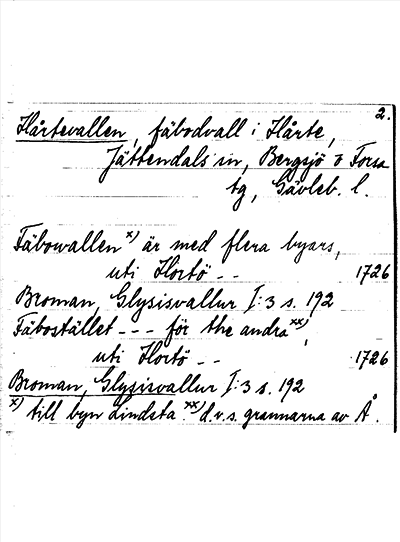 2.
Hårtevallen, fäbodvall i Hårte,
Jättendals sn, Bergsjö o Forsa
tg, Gävleb. l.
Fäbowallen x) är med flera byars,
uti Hortö -- 1726
Broman, Glysisvallur I:3 s. 192
Fäbostället --- för the andra xx),
uti Hortö -- 1726
Broman, Glysisvallur I:3 s. 192
x) till byn Lindsta. xx) d.v.s. grannarna av Å.